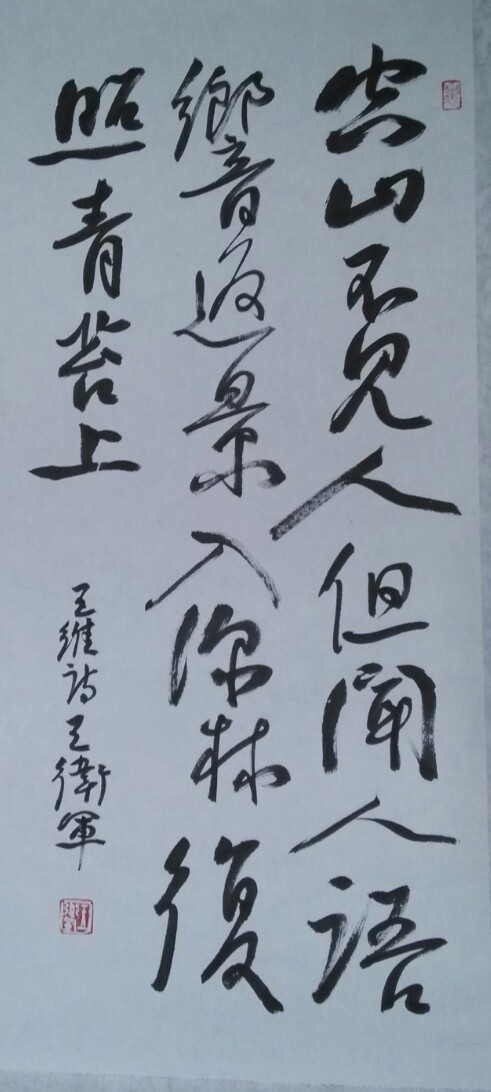 空山不見人但聞人語
響音返景入深林復
照青苔上
王維詩王衛軍